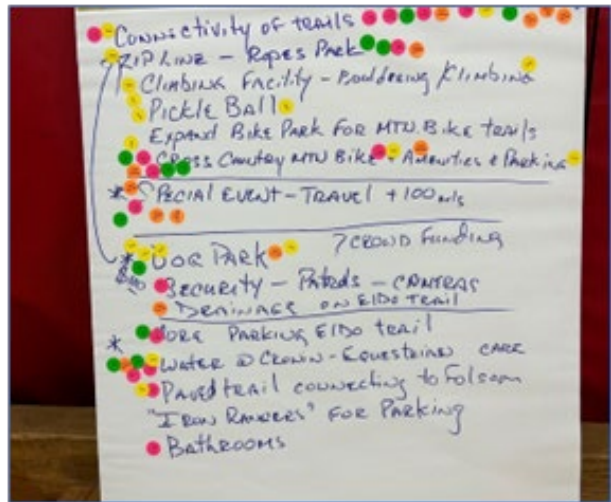 Connectivity of trails
Zip Line - Ropes Park
Climbing Facility - Bouldering/Climbing
Pickle Ball
Expand Bike Park For MTN. Bike trails
Cross Country MTN Bike - Amenities & Parking
* Special Event - Travel +100 mls
? Crowd Funding
* Dog Park
Security - Patrols - Cameras
Drainage on ElDo Trail
* More Parking ElDo trail
Water @ Cronin - Equestrian Care
Paved trail connecting to Folsom
"Iron Rangers" for Parking
Bathrooms